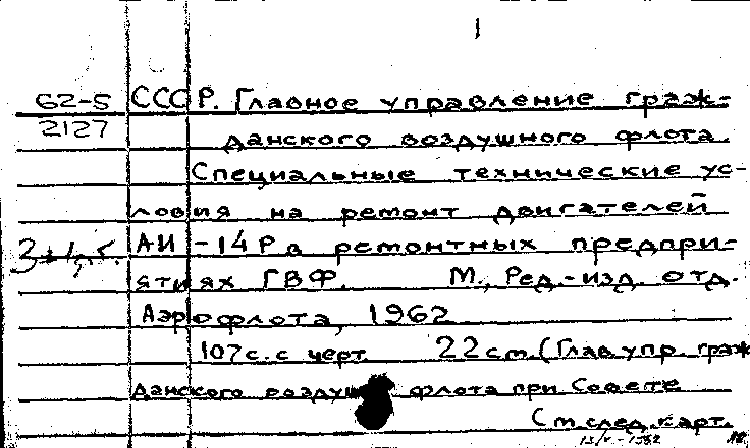 1
62-5 СССР. Главное управление граж-
2127 данского воздушного флота.
Специальные технические ус-
ловия на ремонт двигателей
АИ-14Р в ремонтных предпри-
ятиях ГВФ. М., Ред.-изд. отд.
Аэрофлота, 1962
107 с. с черт. 22 см. (Глав. упр. граж
данского воздушн флота при Совете
См. след. карт.